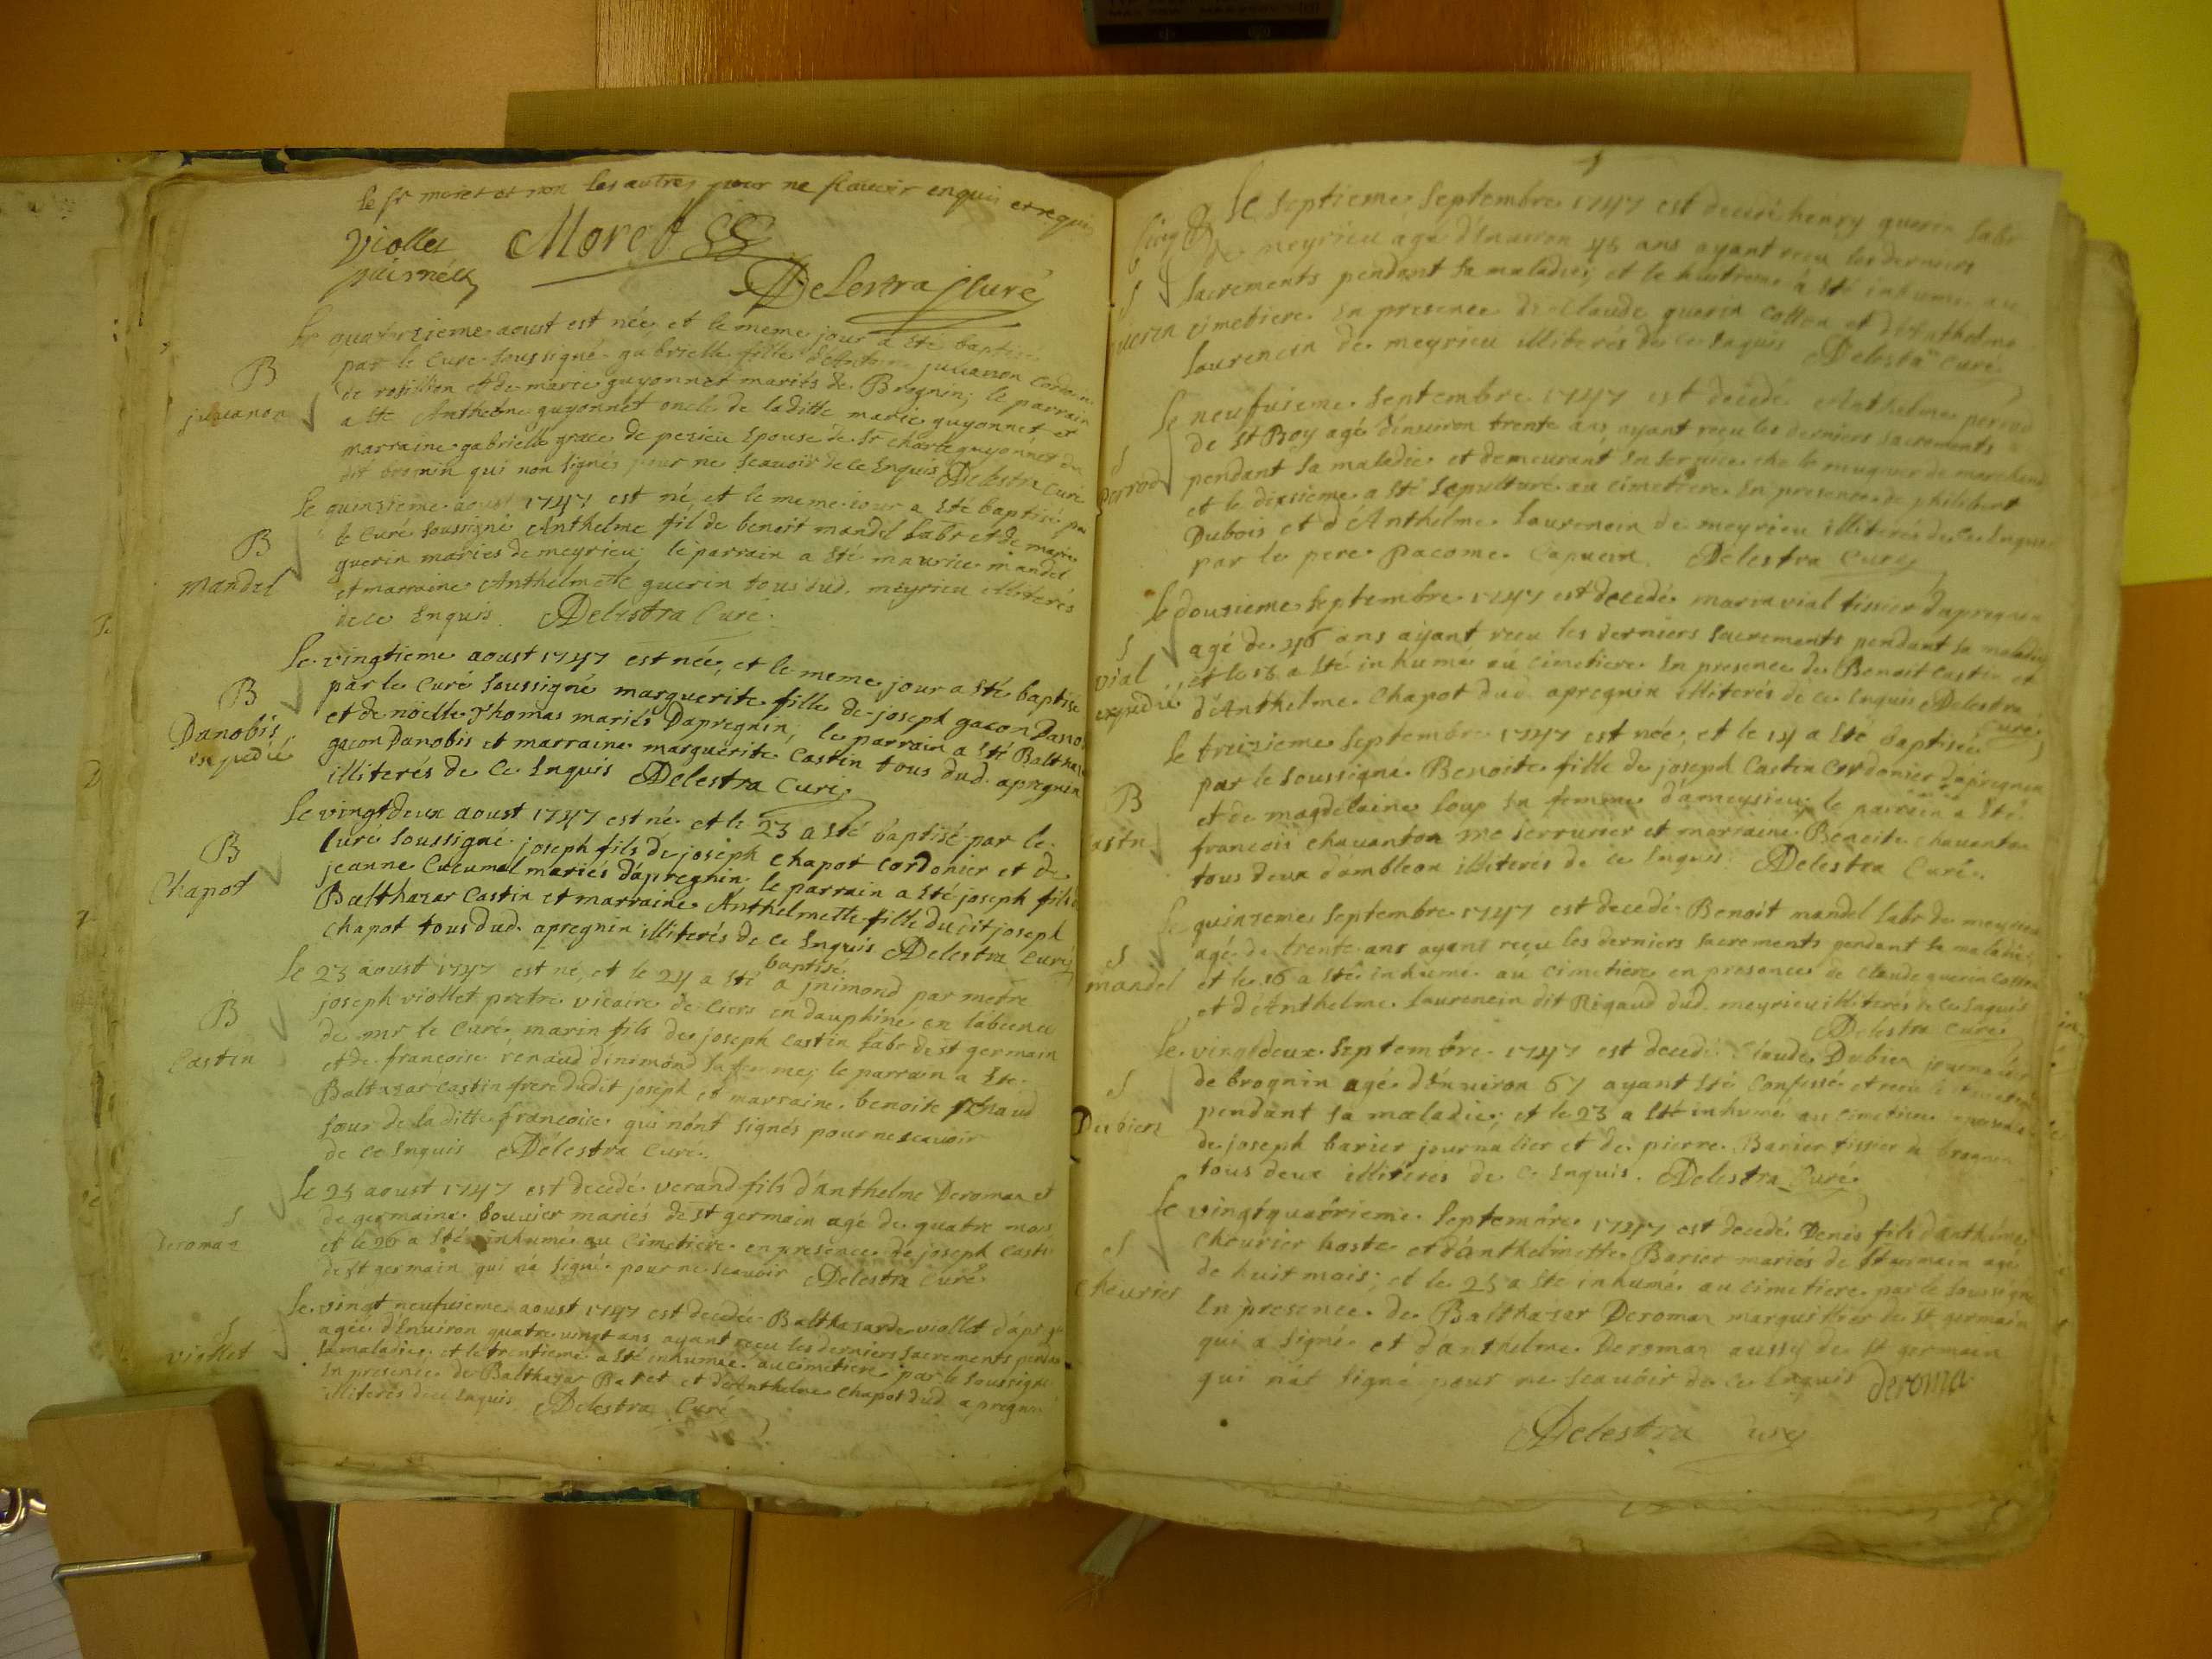 le sr moret et non les autres pour ne scavoir enquis et requis
Viollet Moret
Delestra Curé
Le quatorzieme aoust est née et le meme jour a Eté baptisée
B
par le Curé soussigné gabrielle fille juvanon
juvanon
de rosillion et de marie guyonnet mariés de Brognin; le parrain
a Eté Anthelme guyonnet oncle de laditte marie guyonnet et
marraine gabrielle grace de pezieu Epouse de Sr charle guyonnet du
dit brognin qui non signés pour ne scavoir de ce Enquis Delestra Curé
Le quinzieme aoust 1747 est né, et le meme jour a Eté baptisé par
B
le Curé soussigné Anthelme fil de benoit mandel labr et de marie
guerin mariés de meyrieu; le parrain a Eté maurice mandel
mandel
et marraine Anthelmette guerin tous dud. meyrieu illiterés
de ce Enquis. Delestra Curé.
Le vingtieme aoust 1747 est née, et le meme jour a Eté baptisé
B
par le Curé soussigné marguerite fille de joseph gacon Dano
Danobis
et de nöelle Thomas mariés Dapregnin; le parrain a Eté Balthaz
expedié
gacon Danobis et marraine marguerite Castin tous dud. apregnin
illiterés de Ce Enquis Delestra Curé
Le vingtdeux aoust 1747 est né et le 23 a Eté baptisé par le
B
Curé soussigné joseph fils de joseph Chapot Cordonier et de
Chapot
jeanne Cucumel mariés dapregnin; le parrain a Eté joseph fils
Balthazar Castin et marraine Anthelmette fille dudit joseph
Chapot tous dud. apregnin illiterés de Ce Enquis Delestra Curé
Le 23 aoust 1747 est né, et le 24 a Eté baptisé a jnimond par metre
B
joseph viollet pretre vicaire de Ciers en dauphiné en labsence
de mr le Curé, marin fils de joseph Castin labr de st germain
Castin
et de francoise renaud dinimond sa femme; le parrain a Eté
Baltazar Castin frere dudit joseph et marraine benoite renaud
sœur de laditte francoise qui nont signés pour ne scavoir
de Ce Enquis Delestra Curé.
Le 25 aoust 1747 est decedé verand fils d'anthelme Deroman et
S
de germaine bouvier mariés de st germain agé de quatre mois
deroman
et le 26 a Eté inhumé au Cimetiere en presence de joseph Casti
de st germain qui na signé pour ne scavoir Delestra Curé.
Le vingt neufuieme aoust 1747 est decedée Balthazarde viollet dapr
S
agée d'Enuiron quatre vingt ans ayant receu les derniers sacrements penda
viollet
sa maladie; et le trentieme a Eté inhumée au cimetiere par le soussigné
En presence de Balthazar Baret et de Anthelme Chapot dud apregnin
illiterés de ce Enquis Delestra Curé
Le septieme septembre 1747 est decedé henry guerin labr
de meyrieu agé d'Enuiron 45 ans ayant receu les derniers
S
sacrements pendant sa maladie; et le huitieme a Eté inhumé au
uerin
cimetiere En presence de Claude guerin Cotton et d'Anthelme
laurencin de meyrieu illiterés de Ce Enquis Delestra Curé
Le neufuieme septembre 1747 est decedé Anthelme perrod
S
de St Boy agé d'enuiron trente ans, ayant receu les derniers sacrements
perrod
pendant sa maladie et demeurant En seruice che le mugnier de marchand
et le dixsieme a Eté sepulturé au cimetiere En presence de philibert
Dubois et d'Anthelme laurencin de meyrieu illiterés de Ce Enquis
par le pere pacome Capucin. Delestra Curé
Le douzieme septembre 1747 est decedé marin vial tissier dapregnin
S
agé de 46 ans ayant receu les derniers sacrements pendant sa maladie
vial
et le 13 a Eté inhumé au cimetiere En presence de Benoit Castin et
expedié
d'Anthelme Chapot dud apregnin illiterés de ce Enquis Delestra
Curé
Le treizieme septembre 1747 est née, et le 14 a Eté baptisée
par le soussigné Benoite fille de joseph Castin Cordonier dapregnin
B
et de magdelaine loup sa femme dameysieu; le parrain a Eté
astin
francois chavanton me serrurier et marraine Benoite chavanton
tous deux dambleon illiterés de ce Enquis Delestra Curé.
Le quinzeme septembre 1747 est decedé Benoit mandel labr de meyrieu
S
agé de trente ans ayant reçu les derniers sacrements pendant sa maladie
mandel
et le 16 a Eté inhumé au cimetiere en presence de claude guerin Cotton
et d'Anthelme laurencin dit Rigaud dud. meyrieu illiterés de Ce Enquis
Delestra Curé
Le vingtdeux septembre 1747 est decedé Claude Dubien journalier
S
de brognin agé d'Enuiron 67 ayant Eté Confessé et receu
Dubien
pendant sa maladie; et le 23 a Eté inhumé au cimetiere
de joseph barier journalier et de pierre Barier tissier de brognin
tous deux illiteres de Ce Enquis. Delestra Curé
Le vingtquatrieme septembre 1747 est decedé Denis fils d'anthelme
S
cheurier hoste et d'anthelmette Barier mariés de St germain agé
cheurier
de huit mois; et le 25 a Eté inhumé au cimetiere par le soussigné
En presence de Balthazar Deroman marguillier de st germain
qui a signé et d'anthelme Deroman aussy de st germain
qui n'as signé pour ne scavoir de ce Enquis deroma
Delestra Curé